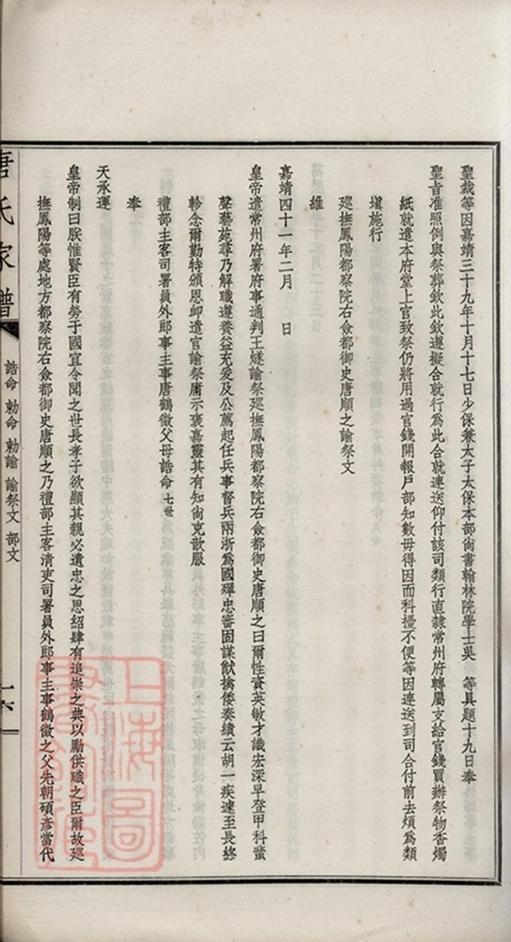 聖裁等因嘉靖三十九年十月十七日少保兼太子太保本部尚書翰林院學士吳　等具題十九日奉
聖旨准照例與祭葬欽此欽遵擬合就行爲此合就連送仰付該司類行直隸常州府轉屬支給官錢買辦祭物香燭
紙就遣本府堂上官致祭仍將用過官錢開報戶部知數毋得因而科擾不便等因連送到司合付前去煩爲類
填施行
廵撫鳳陽都察院右僉都御史唐順之諭祭文
維
嘉靖四十一年二月　日
皇帝遣常州府署府事通判王㷆諭祭廵撫鳳陽都察院右僉都御史唐順之曰爾性資英敏才識宏深早登甲科蜚
聲藝苑尋乃解職遵養益充爰及公薦起任兵事督兵兩浙爲國殫忠審固謀猷擒倭奏績云胡一疾遽至長終
軫念爾勤特頒恩卹遣官諭祭庸示褒嘉靈其有知尚克歆服
禮部主客司署員外郎事主事唐鶴徵父母誥命七世
奉
天承運
皇帝制曰朕惟賢臣有勞于國宜令聞之世長孝子欲顯其親必遺忠之思紹肆有追崇之典以勵供職之臣爾故廵
撫鳳陽等處地方都察院右僉都御史唐順之乃禮部主客清吏司署員外郎事主事鶴徵之父先朝碩彥當代
唐氏家譜
誥命 勅命 勅諭 諭祭文 部文
十六
上海圖
書館藏